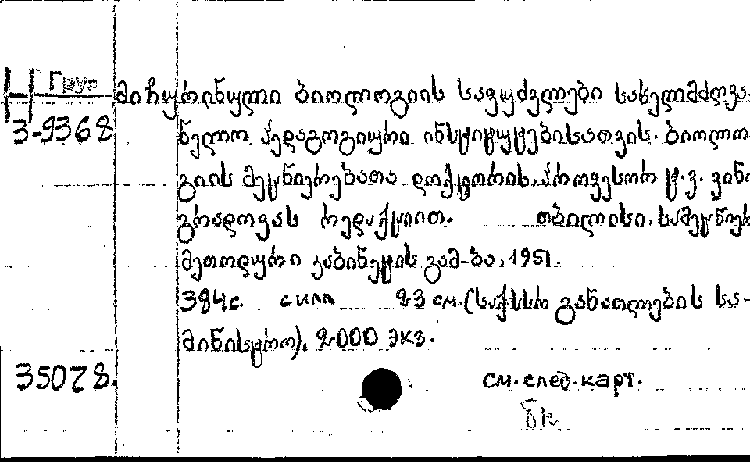 Груз
Н
მიჩურინული ბიოლოგიის საფუძვლები სახელმძღვა-
3-9368
ნელო პედაგოგიური ინსტიტუტებისათვის. ბიოლო-
გიის მეცნიერებათა დოქტორის, პროფესორ ტ. ვ. ვინო-
გრადოვას რედაქციით. თბილისი. სამეცნიერ
მეთოდური კაბინეტის გამ-ბა, 1951.
384 с. с илл 23 см. (საქსსრ განათლების სა-
მინისტრო), 2.000 экз.
35078.
см. след. карт.